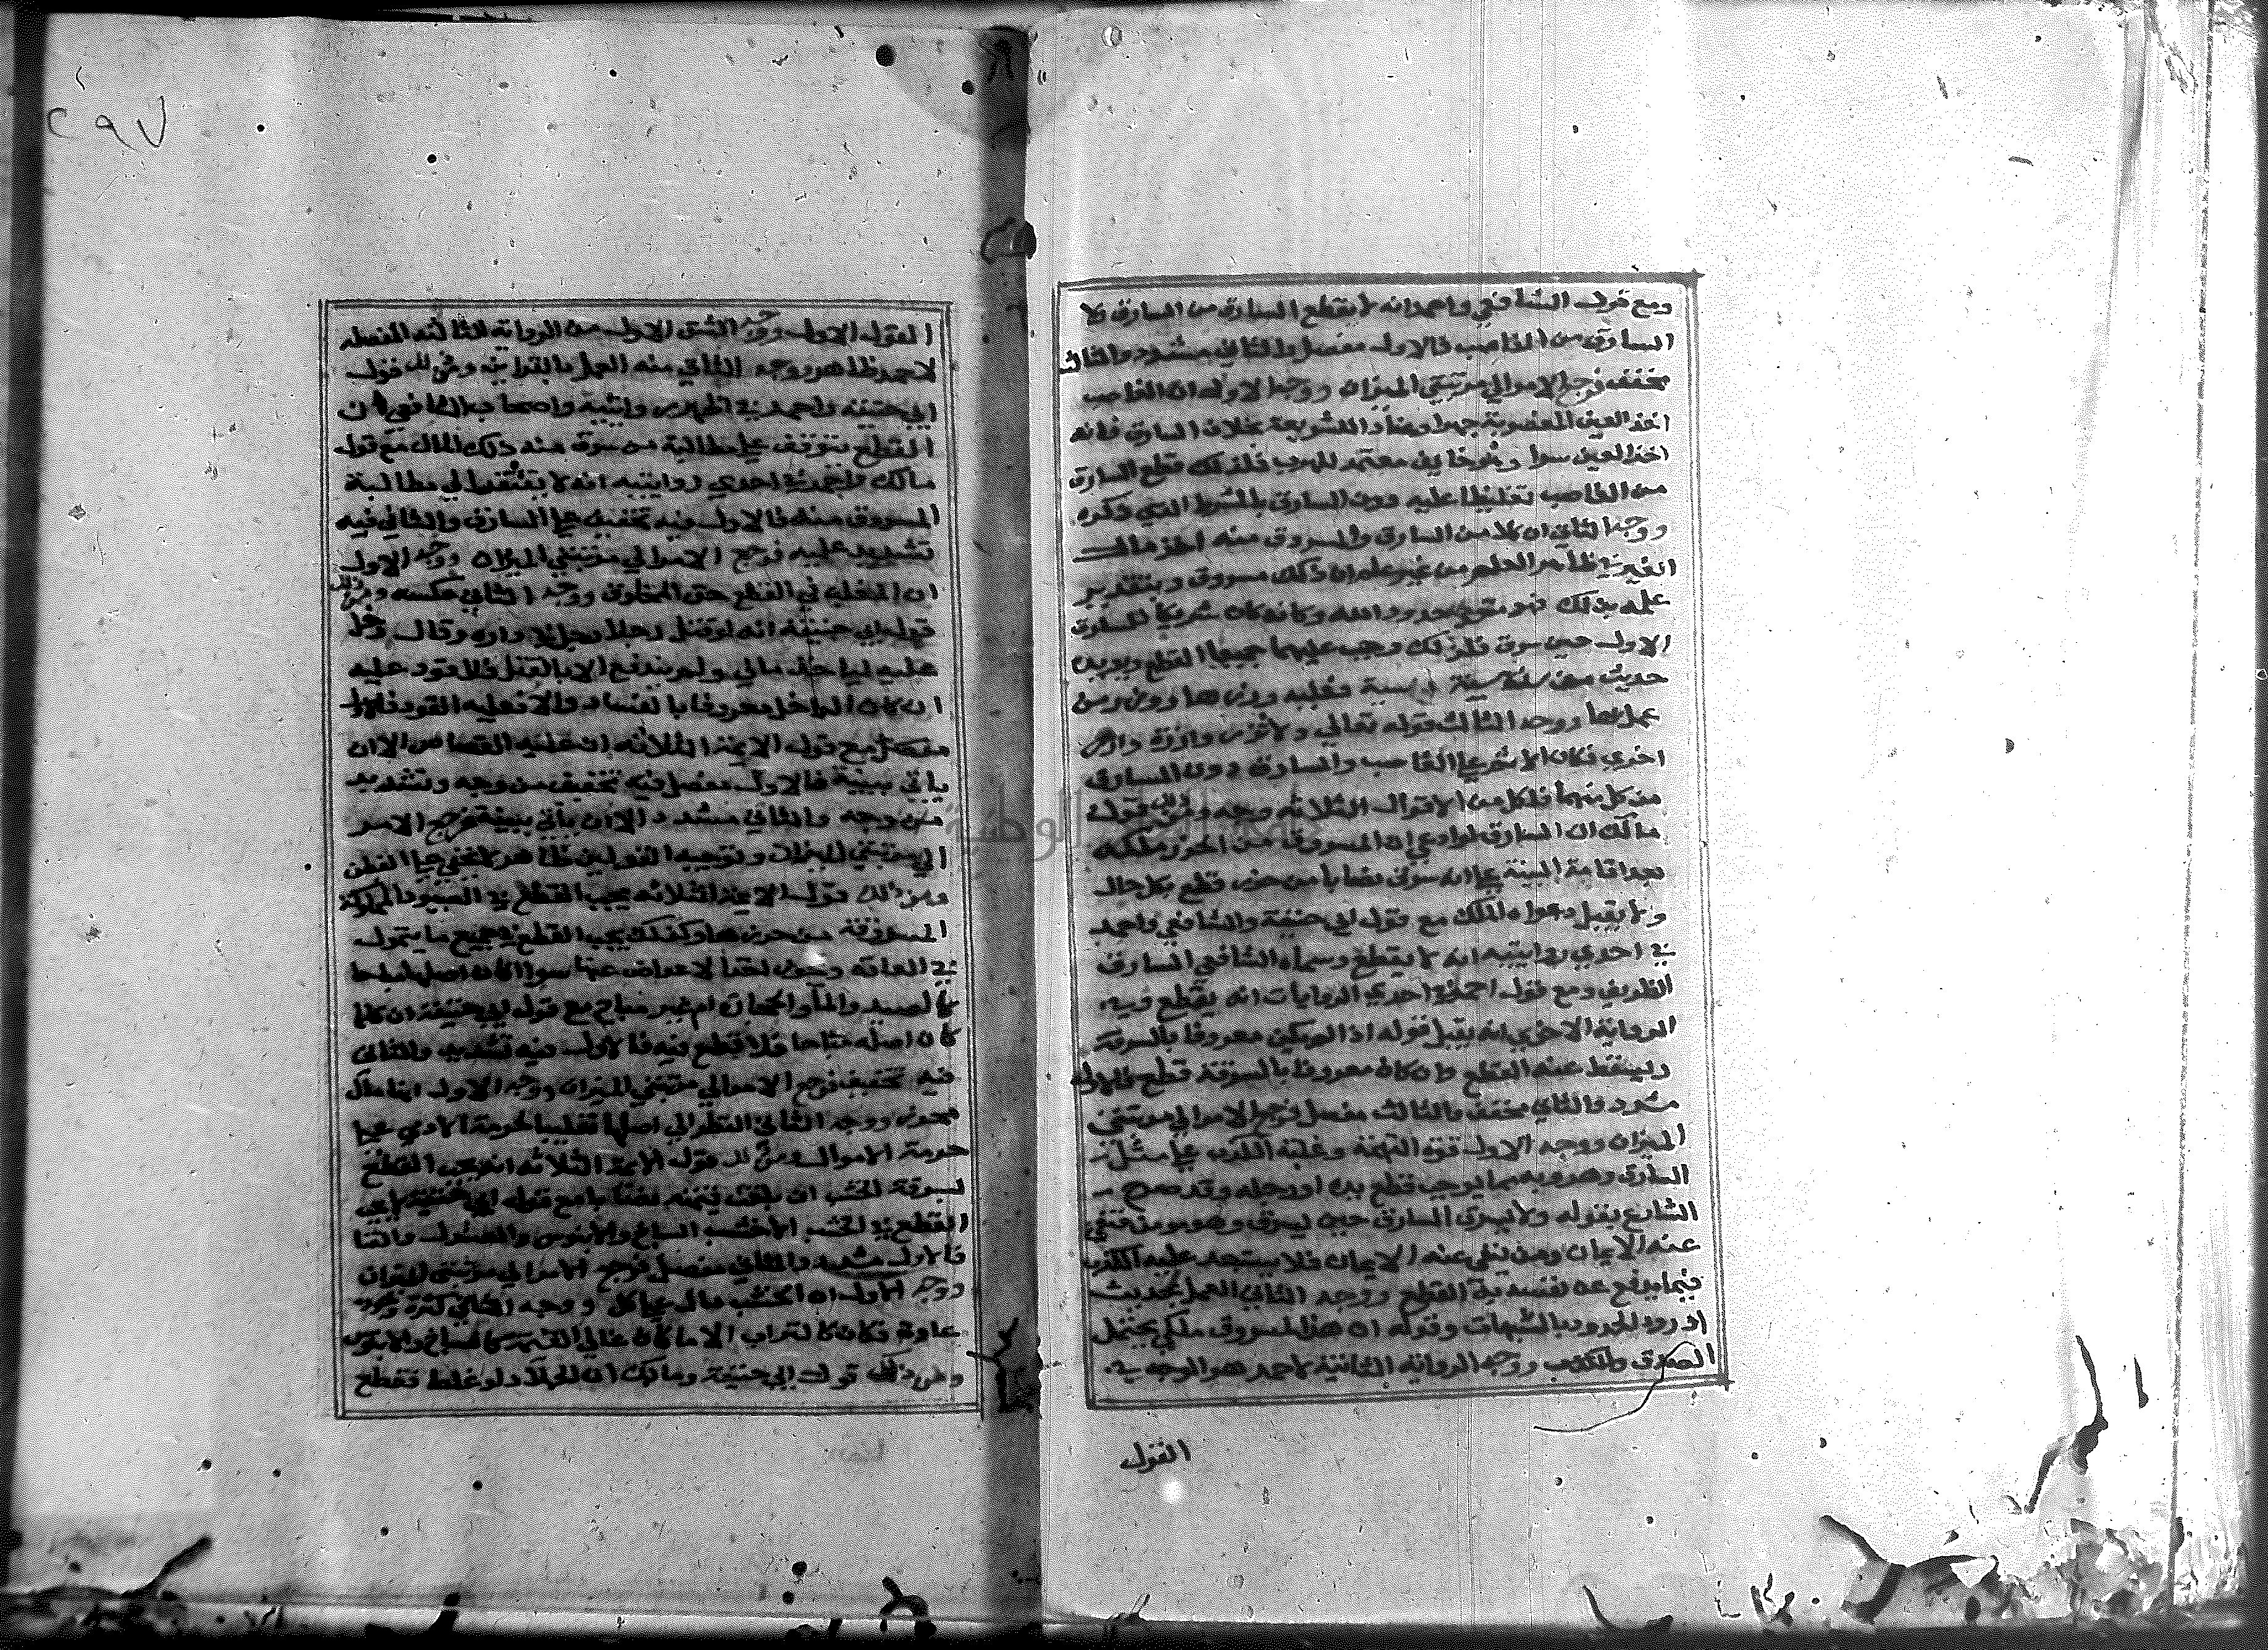 ومع قول الشافعي واحمد انه لا يقطع السارق من السارق ولا
السارق من الغاصب فالاول مفصل والثاني مشدد والثالث
مخفف فرجع الامر الي مرتبتي الميزان ووجه الاول ان الغاصب
اخذ العين المغصوبة جهرا وعنادا للشريعة بخلاف السارق فانه
اخذ العين سرا وهو خايف معتمد للهرب فلذلك قطع السارق
من الغاصب تغليظا عليه دون السارق بالشرط الذي ذكره
ووجه الثاني ان كلا من السارق والمسروق منه اخذ مال
الغير في ظاهر الحلم من غير علم ان ذلك مسروق وبتقدير
علمه بذلك فهو متعدي حدود الله وكانه كان شريكا للسارق
الاول حين سرق فلذلك وجب عليهما جميعا القطع ويويده
حديث من سن سنة سيئة فعليه وزرها ووزر من
عمل بها ووجه الثالث قوله تعالي ولا تزر وازرة وزر
اخري فكان الاثم علي الغاصب والسارق دون السارق
من كل منهما فلكل من الاقوال الثلاثه وجه ومن ذلك قول
مالك ان السارق لو ادعي ان المسروق من الحرز ملكه
بعد اقامة البينة علي انه سرق نصابا من حرز قطع بكل حال
ولا يقبل دعواه الملك مع قول ابي حنيفة والشافعي واحمد
في احدي روايتيه انه لا يقطع وسماه الشافعي السارق
الظريف ومع قول احمد في احدي الروايات انه يقطع وفي
الرواية الاخري انه يقبل قوله اذا لم يكن معروفا بالسرقة
ويسقط عنه القطع وان كان معروفا بالسرقة قطع فالاول
مشدد والثاني مخفف والثالث مفصل فرجع الامر الي مرتبتي
الميزان ووجه الاول قوة التهمة وغلبة الكذب علي مثل
السارق وهروبه مما يوجب قطع يده او رجله وقد صرح
الشارع بقوله ولا يسرق السارق حين يسرق وهو مومن فنفي
عنه الايمان ومن نفي عنه الايمان فلا يستبعد عليه الكذب
فيما يدفع عن نفسه به القطع ووجه الثاني العمل بحديث
ادرووا الحدود بالشبهات وقوله ان هذا المسروق ملكي يحتمل
الصدق والكذب ووجه الرواية الثانية لاحمد هو الوجه في
القول
٢٩٧
القول الاول ووجه الشق الاول من الرواية الثالثه المفصله
لاحمد ظاهر ووجه الثاني منه العمل بالقراين ومن ذلك قول
ابي حنيفه واحمد في اظهر روايتيه واصحاب الشافعي ان
القطع يتوقف علي مطالبة من سرق منه ذلك المال مع قول
مالك واحمد في احدي روايتيه انه لا يفتقر الي مطالبة
المسروق منه فالاول فيه تخفيف علي السارق والثاني فيه
تشديد عليه فرجع الامر الي مرتبتي الميزان ووجه الاول
ان المغلب في القطع حق المخلوق ووجه الثاني عكسه ومن ذلك
قول ابي حنيفة انه لو قتل رجلا دخل في داره وقال دخل
عليه لياخذ مالي ولم يندفع الا بالقتل فلا قود عليه
ان كان الداخل معروفا بالفساد والا فعليه القود
مع قول الايمة الثلاثه ان عليه القصاص الا ان
ياتي ببينة فالاول مفصل فيه تخفيف من وجه وتشديد
من وجه والثاني مشدد الا ان ياتي ببينة فرجع الامر
الي مرتبتي الميزان وتوجيه القولين ظاهر لا يخفي علي الفطن
ومن ذلك قول الايمة الثلاثه يجب القطع في الصيود المملوكة
المسروقة من حرزها وكذلك يجب القطع في جميع ما يتمول
في العادة ويجوز اخذ الاعواض عنه سوا كان اصلها مباحا
كالصيد والماء والحجارة ام غير مباح مع قول ابي حنيفة ان كلما
كان اصله مباحا فلا قطع فيه فالاول فيه تشديد والثاني
فيه تخفيف فرجع الامر الي مرتبتي الميزان ووجه الاول انها مال
محرز ووجه الثاني النظر الي اصلها تغليبا لحرمة الادمي علي
حرمة الاموال ومن ذلك قول الايمة الثلاثه انه يجب القطع
لسرقة الخشب ان بلغت قيمته نصابا مع قول ابي حنيفة لا يجب
القطع في الخشب الا خشب الساج والابنوس والصندل والقنا
فالاول مشدد والثاني مفصل فرجع الامر الي مرتبتي الميزان
ووجه الاول ان الخشب مال علي كل ووجه الثاني كثرة وجوده
عادة فكان كالتراب الا ما كان غالي القيمة كالساج والابنوس
ومن ذلك قول ابي حنيفة ومالك ان الجلاد لو غلط فقطع